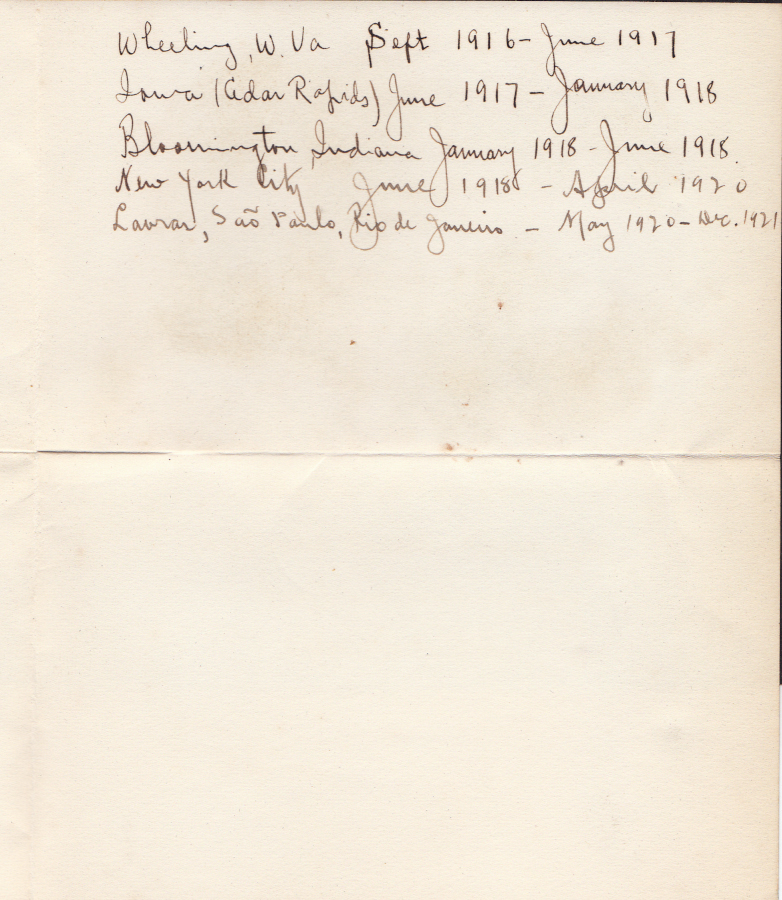 Wheeling, W. Va Sept 1916 - June 1917
Iowa (Cedar Rapids) June 1917 - January 1918
Bloomington, Indiana January 1918 - June 1918.
New York City June 1918 - April 1920
Lavras, São Paulo, Rio de Janeiro - May 1920 - Dec. 1921